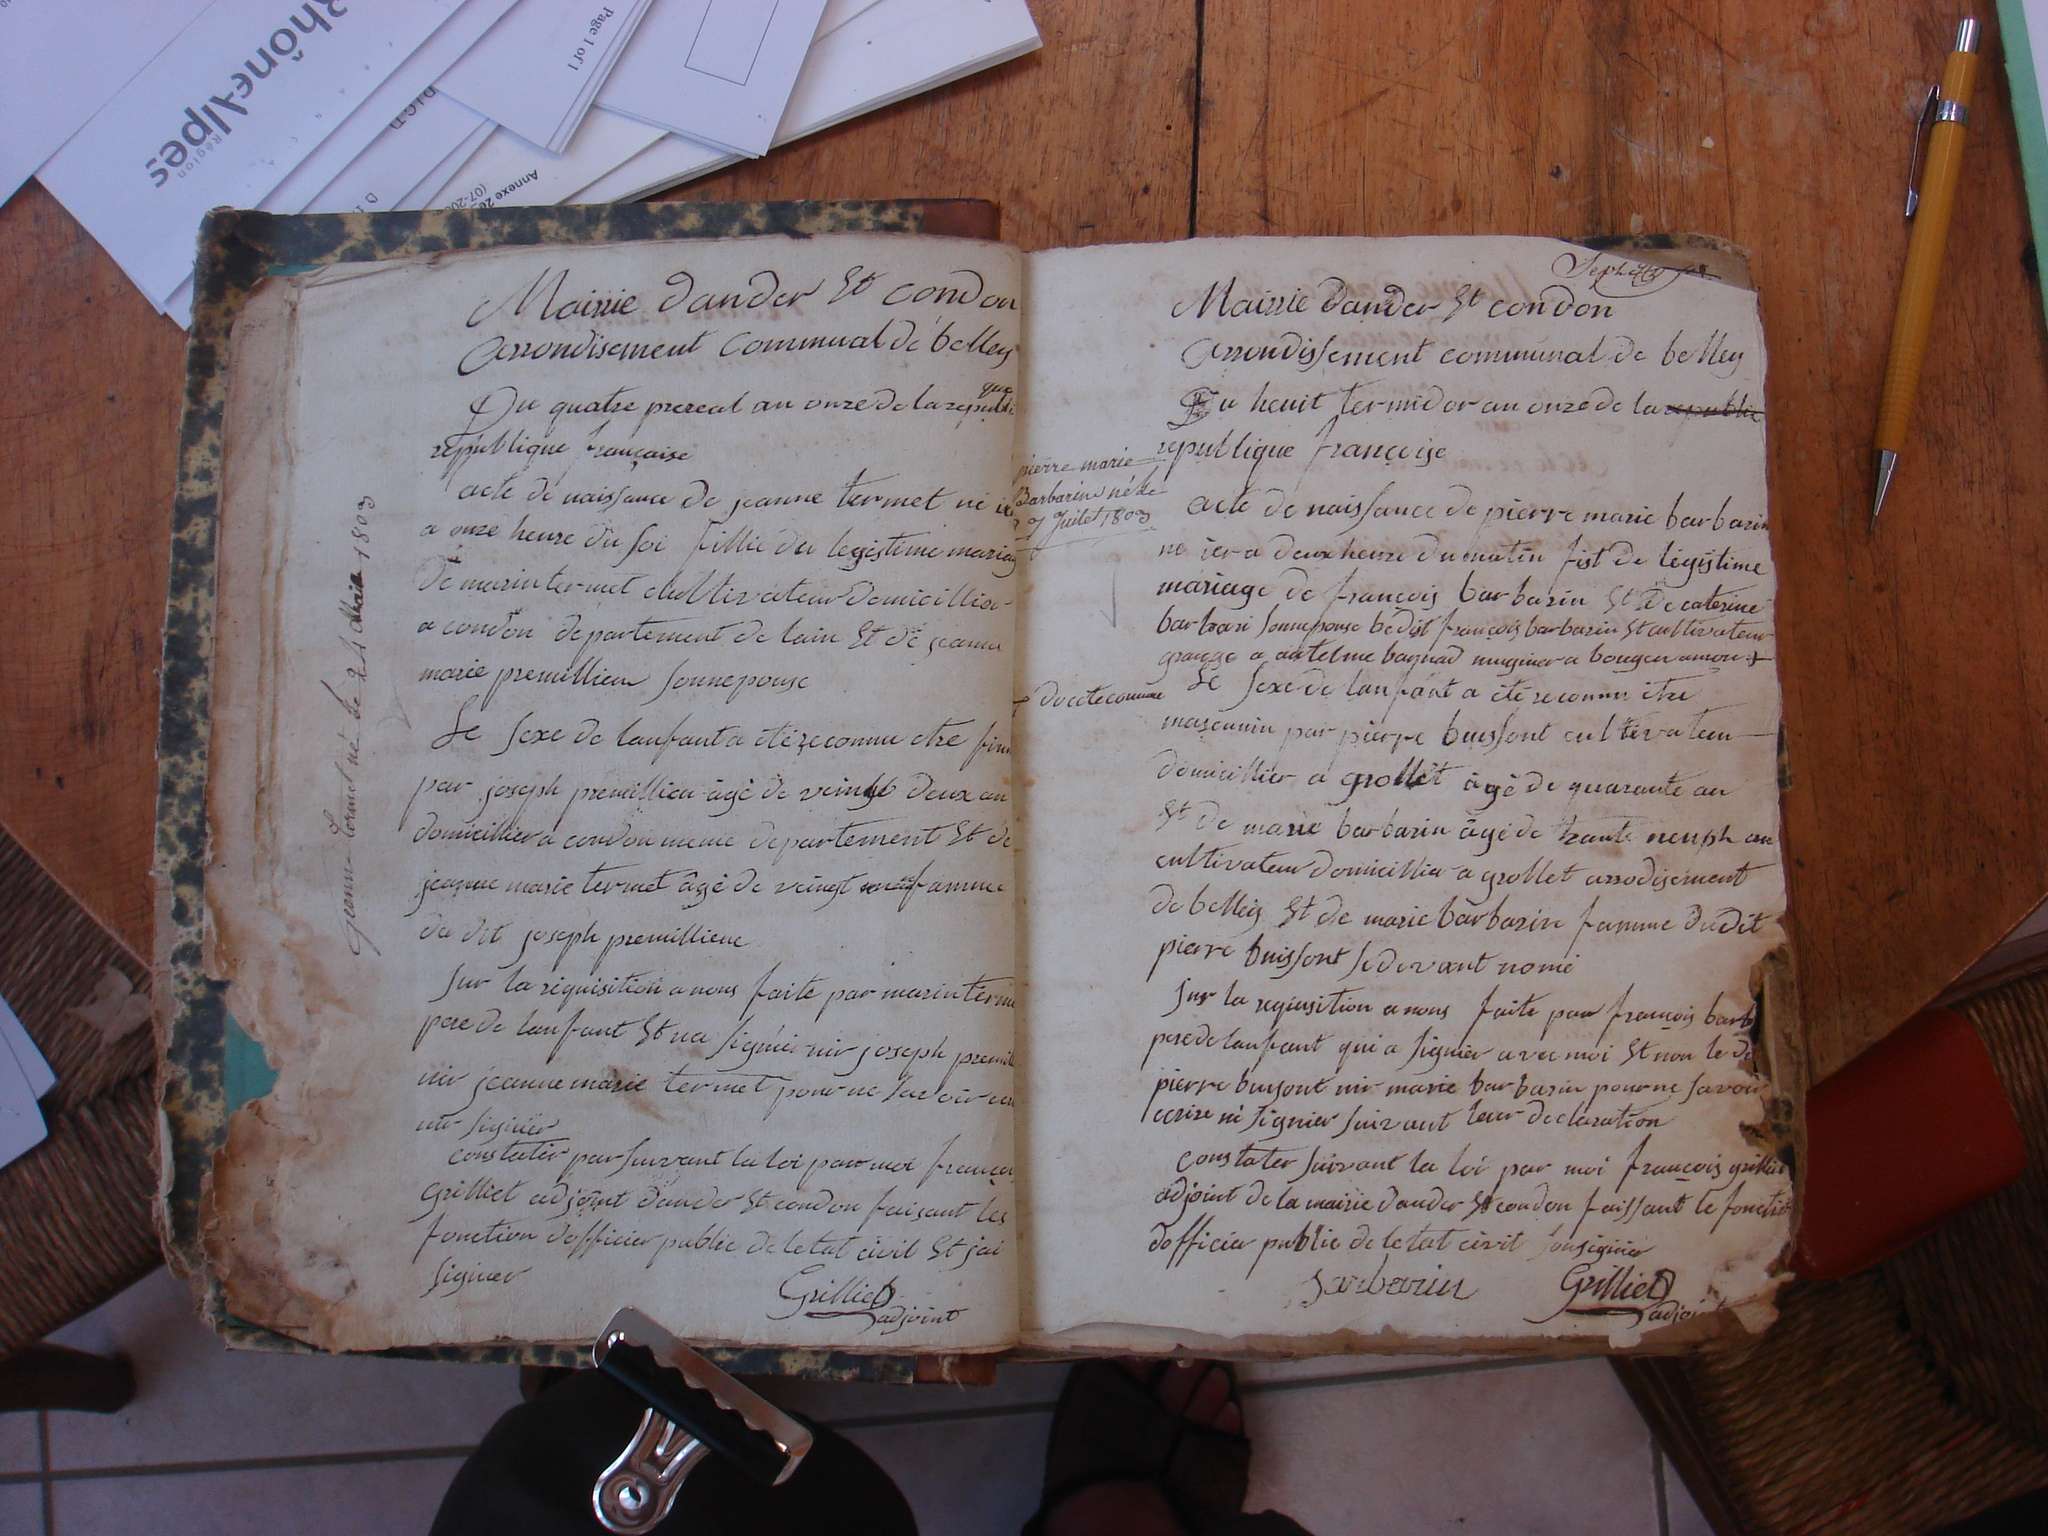 Rhône-Alpes
Région
Page 1 of 1
DICT
Annexe
(07-20
Mairie dander St condon
arrondisement communal de belley
Du quatre prereal an onze de la republi
que
republique francaise
acte de naissance de jeanne termet né ier
a onze heure du soi fillie du legistime mariag
de marin termet cheltivateur domicillier
a condon departement de lain St de jeanne
marie premillieu sonnepouse
Le sexe de lanfant a etéreconnu etre fim
par joseph premillieu âgé de veingt deux an
domicillier a condon meme departement St de
jeanne marie termet âgé de veingt famme
du dit joseph premillieue
sur la requisition a nous faite par marin terme
pere de lanfant St na signier nir joseph premilli
nir jeanne marie termet pour ne savoir
nir signier
constater par suivant la loi par moi françoi
Grilliet adjoint dander St condon faisant les
fonction dofficier public de letat civil St jai
signier
Grilliet
adjoint
jeanne termet né le 24 Mai 1803
Mairie dander St condon
arrondissement communal de belley
Du heuit termidor an onze de la republic
republique françoise
pierre marie
Barbarin né le
27 Juilet 1803
acte de naissance de pierre marie barbarin
ne iera deux heure du matin fist de legistime
mariage de françois barbarin St de caterine
barbari sonnepouse bedist françois barbarin St cultivateur
grange a antelme bagnad muginer a bougeu amon +
+ du cete commune
Le sexe de lanfant a été reconnu etre
mascunin par pierre buissont cultivateur
domicillier a grollet âgé de quarante an
St de marie barbarin âgé de trante neuph an
cultivateur domicillier a grollet arrodisement
de belley St de marie barbarin famme dudit
pierre buissont sedevant nomé
sur la requisition a nous faite par françois barb
pere de lanfant qui a signier avec moi St non le d
pierre buisont nir marie barbarin pour ne savoir
ecrire ni signier suivant leur declaration
constater suivant la loi par moi françois grilliet
adjoint de la mairie dander St condon faissant le fonction
dofficier public de letat civil sousignier
Barbarin Grilliet
adjoint